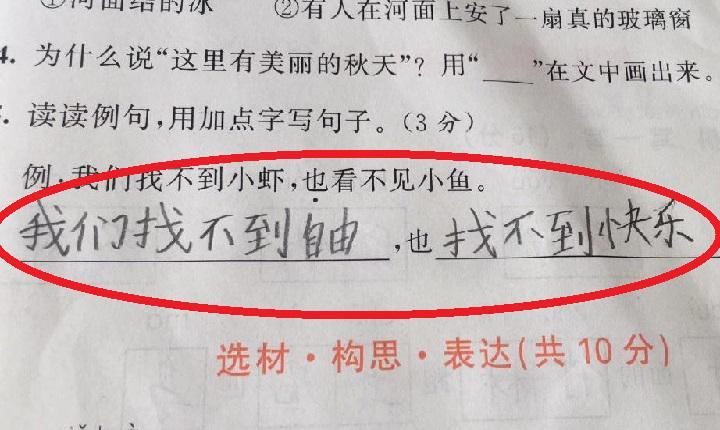 ①河面结的冰 ②有人在河面上安了一扇真的玻璃窗
4. 为什么说“这里有美丽的秋天”?用“____”在文中画出来。
. 读读例句,用加点字写句子。(3分)
例:我们找不到小虾,也看不见小鱼。
我们找不到自由,也找不到快乐
选材·构思·表达(共10分)